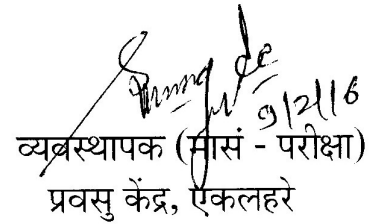 9/2/16
व्यवस्थापक (मासं - परीक्षा)
प्रवसु केंद्र, एकलहरे